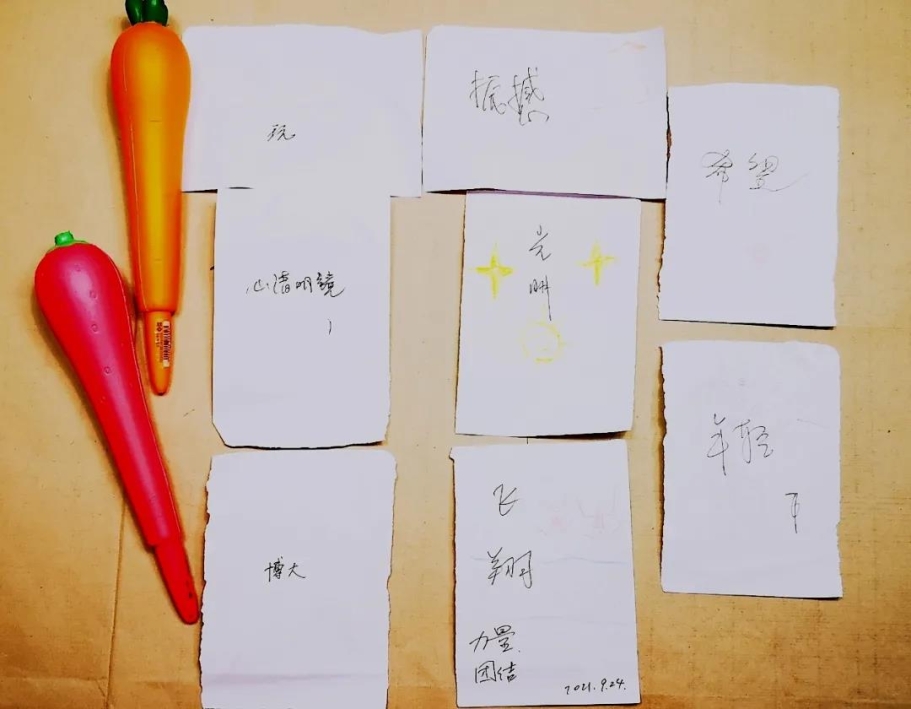 玩
振撼
希望
心清明镜
光
明
年轻
博大
飞
翔
力量
团结
2021.9.24.